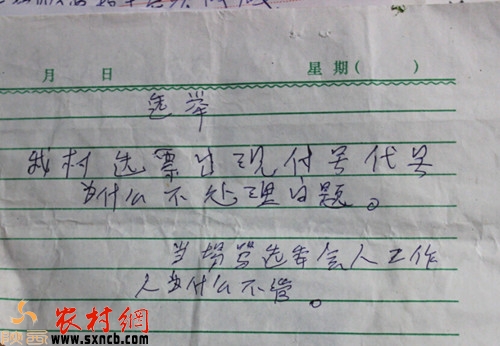 月 日 星期( )
选举
我村选票出现付号代号
为什么不处理问题。
当场骂选举会人工作
人为什么不管。
陕西
农村網
www.sxncb.com